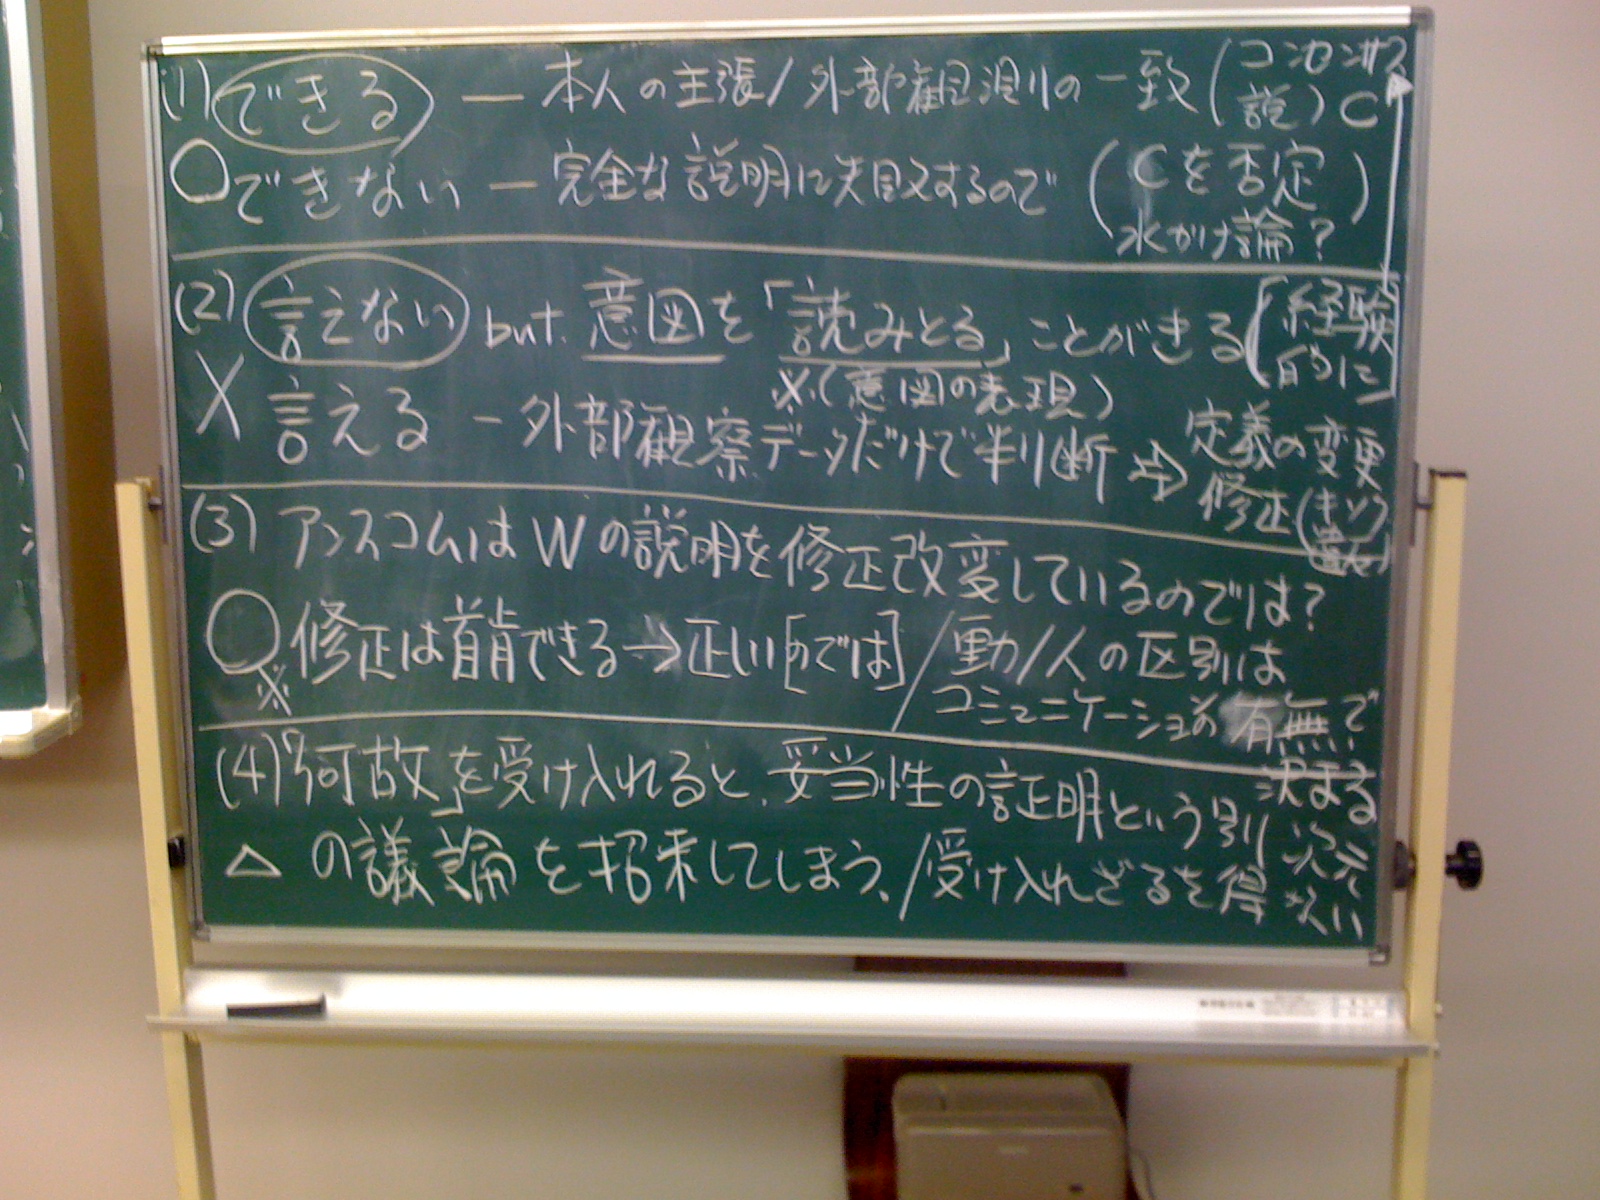 (1) できる — 本人の主張/外部観測の一致(コンセンサス説) C
○できない — 完全な説明に失敗するので (Cを否定 水かけ論?)
(2) 言えない but 意図を「読みとる」ことができる[経験的に]
※(意図の表現)
X 言える - 外部観察データだけで判断 ⇒ 定義の変更 修正
(3) アンスコムはWの説明を修正改変しているのでは?
○※ 修正は首肯できる→正しい[のでは] / 動/人の区別は
コミュニケーションの有無で決まる
(4)「何故」を受け入れると、妥当性の証明という別次元
△ の議論を招来してしまう、/受け入れざるを得ない